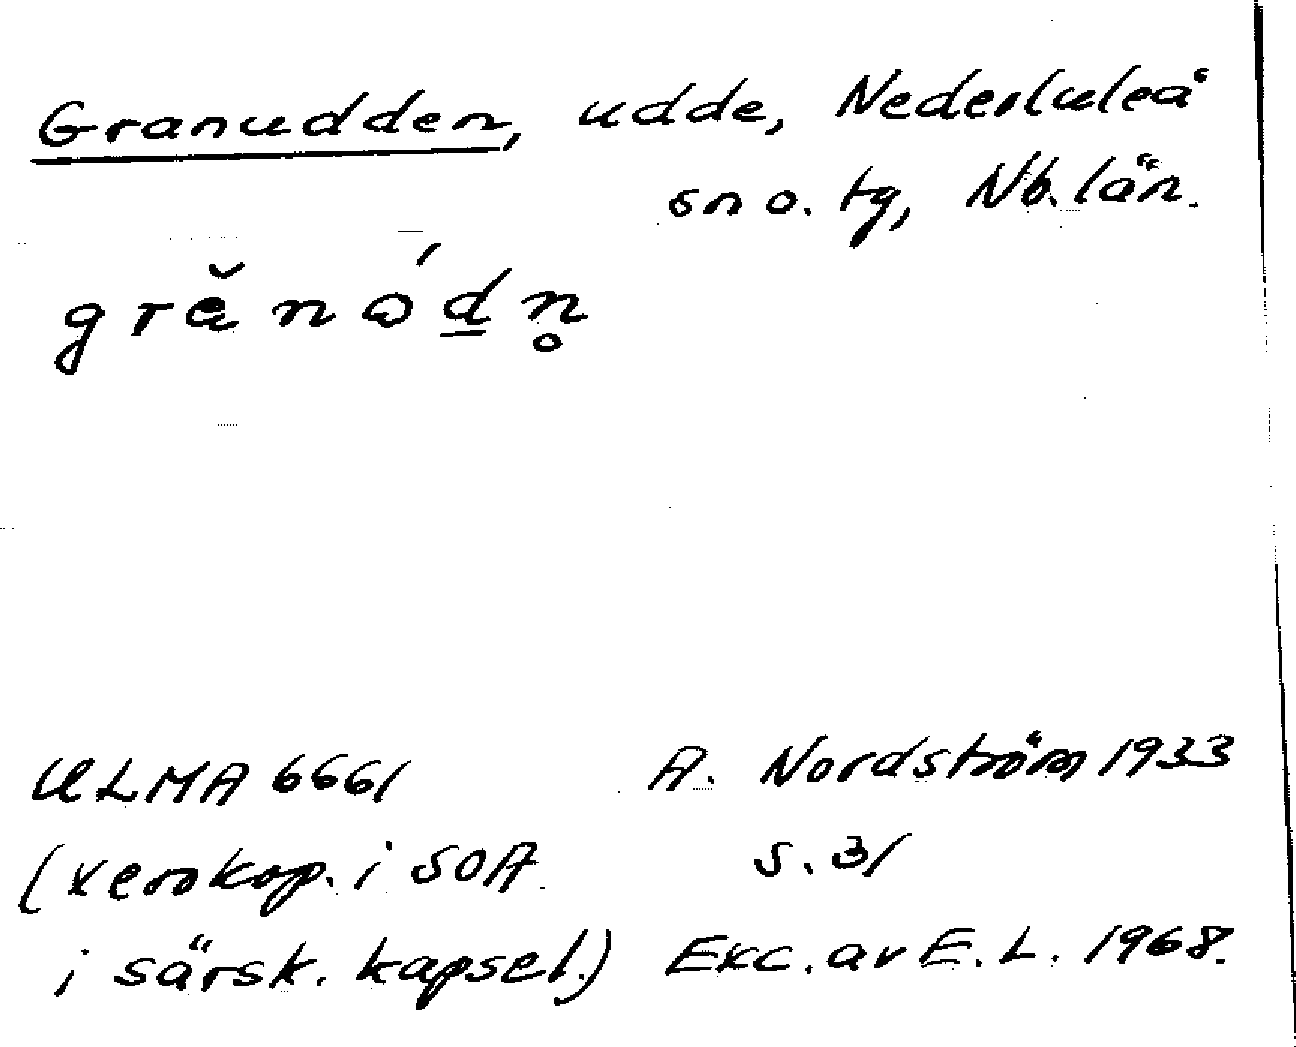 Granudden, udde, Nederluleå
sn o. tg, Nb. län.
grĕnód̲n̥
ULMA 6661 A. Nordström 1933
(xerokop. i SOA s. 31
i särsk. kapsel.) Exc. av E. L. 1968.